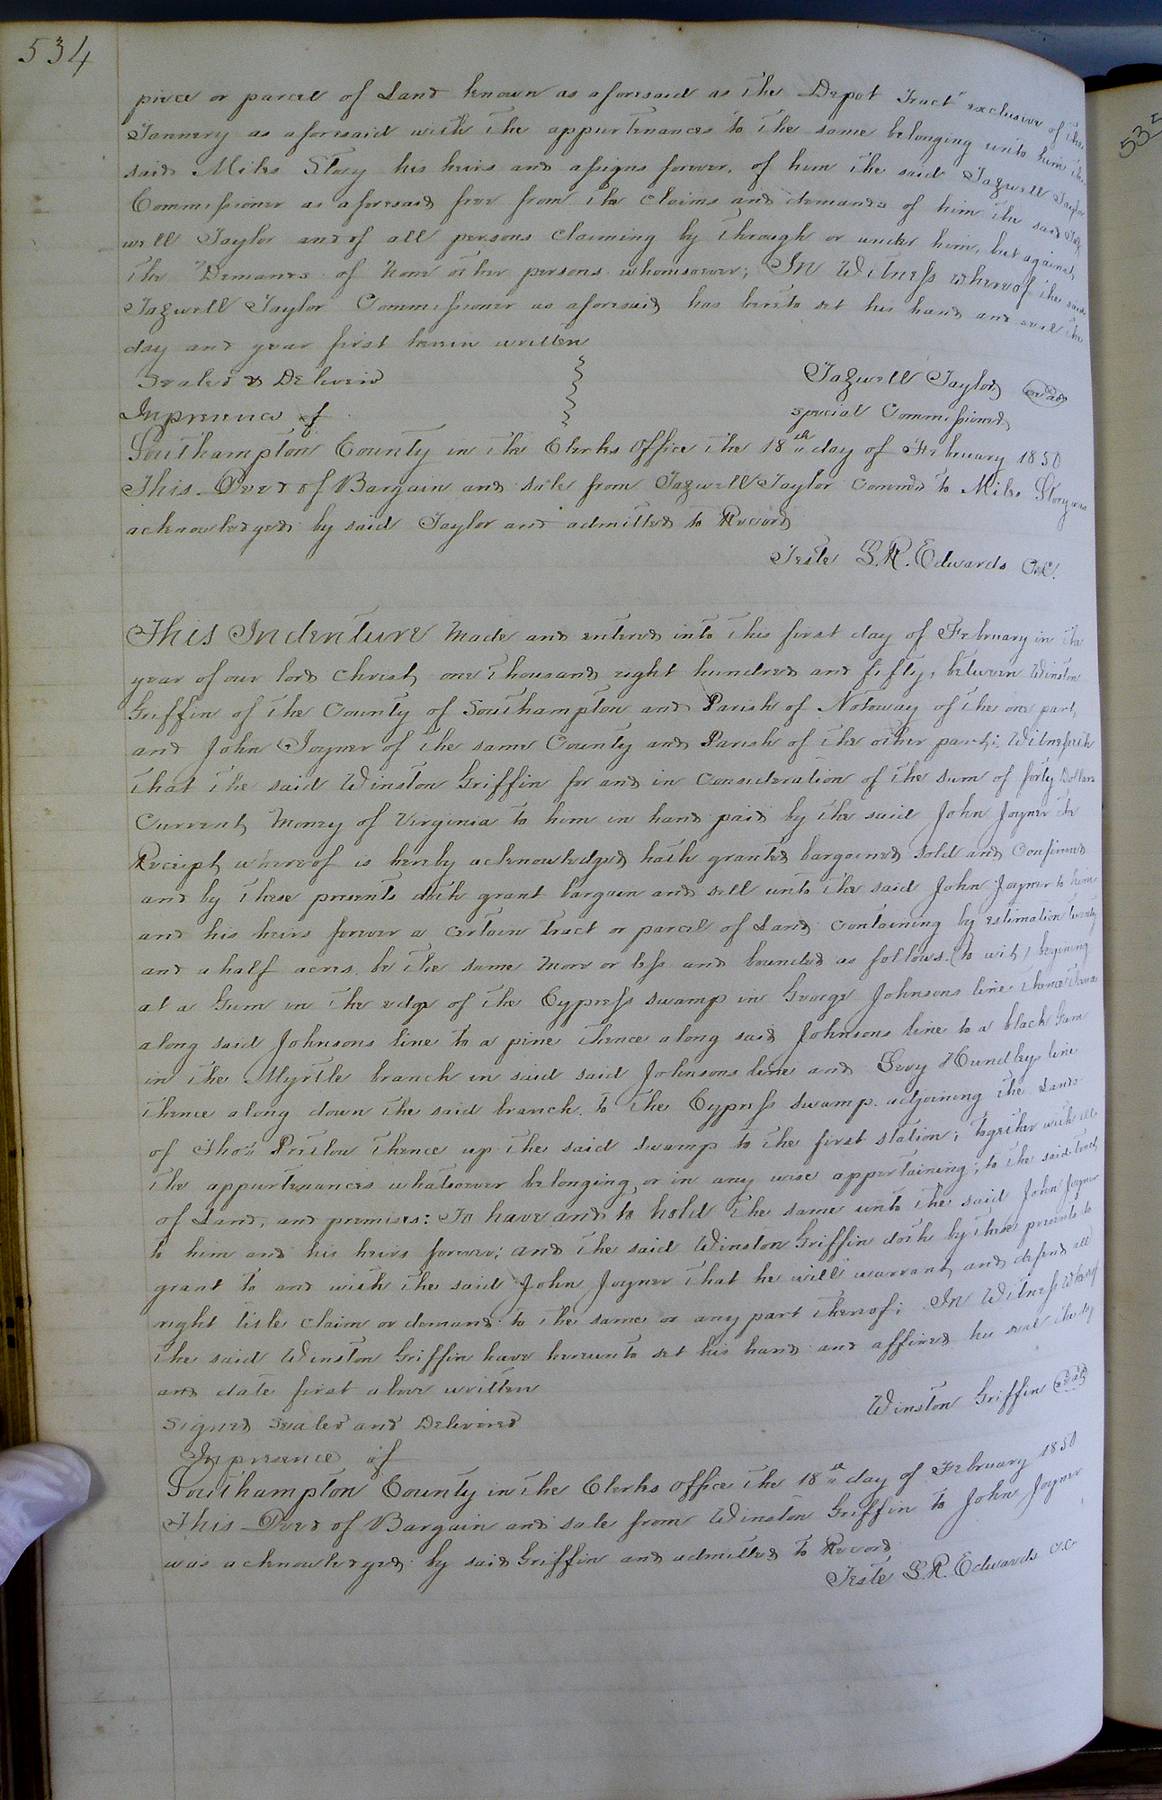 534
piece or parcel of Land known as aforesaid as the Depot Tract exclusive of the
Tannery as aforesaid with the appurtenances to the same belonging unto him the
said Miles Story his heirs and assigns forever, of him the said Tazwell Taylor
Commissioner as aforesaid free from the claims and demands of him the said Taz
well Taylor and of all persons claiming by through or under him, but against
the Demands of None other persons whomsoever; In Witness whereof the said
Tazwell Taylor Commissioner as aforesaid has hereto set his hand and seal the
day and year first herein written
Sealed & Deliverd
Tazwell Taylor seal
Inpresence of
special Commissioner
Southampton County in the Clerks office the 18th day of February 1850
This Deed of Bargain and Sale from Tazwell Taylor Commr to Miles Story was
acknowledged by said Taylor and admitted to Record
Teste L.R. Edwards C.C.
This Indenture Made and entered into this first day of February in the
year of our lord Christ one thousand eight hundred and fifty, between Winston
Griffin of the County of Southampton and Parish of Notoway of the one part,
and John Joyner of the same County and Parish of the other part; Witnesseth
that the said Winston Griffin for and in consideration of the sum of forty Dollars
Current Money of Virginia to him in hand paid by the said John Joyner the
Receipt whereof is hereby acknowledged hath granted bargained sold and Confirmed
and by these presents doth grant bargain and sell unto the said John Joyner to him
and his heirs forever a certain tract or parcel of Land containing by estimation twenty
and a half acres, be the same more or less and bounded as follows (to wit) begining
at a Gum in the edge of the Cypress swamp in George Johnsons line thence
along said Johnsons line to a pine thence along said Johnsons line to a black Gum
in the Myrtle branch in said said Johnsons line and Levy Hundleys line
thence along down the said branch to the Cypress swamp adjoining the Lands
of Thos. Pretlow thence up the said swamp to the first station; together with all
the appurtenances whatsoever belonging, or in any wise appertaining; to the said tract
of Land, and premises: To have and to hold the same unto the said John Joyner
to him and his heirs forever; and the said Winston Griffin doth by these presents to
grant to and with the said John Joyner that he will warrant and defend all
right title claim or demand to the same or any part thereof; In Witness Whereof
the said Winston Griffin have hereunto set his hand and affixed his seal the day
and date first above written
Winston Griffin seal
Signed Sealed and Delivered
Inpresence of
Southampton County in the Clerks office the 18th day of February 1850
This Deed of Bargain and sale from Winston Griffin to John Joyner
was acknowledged by said Griffin and admitted to Record
Teste L.R. Edwards C.C.